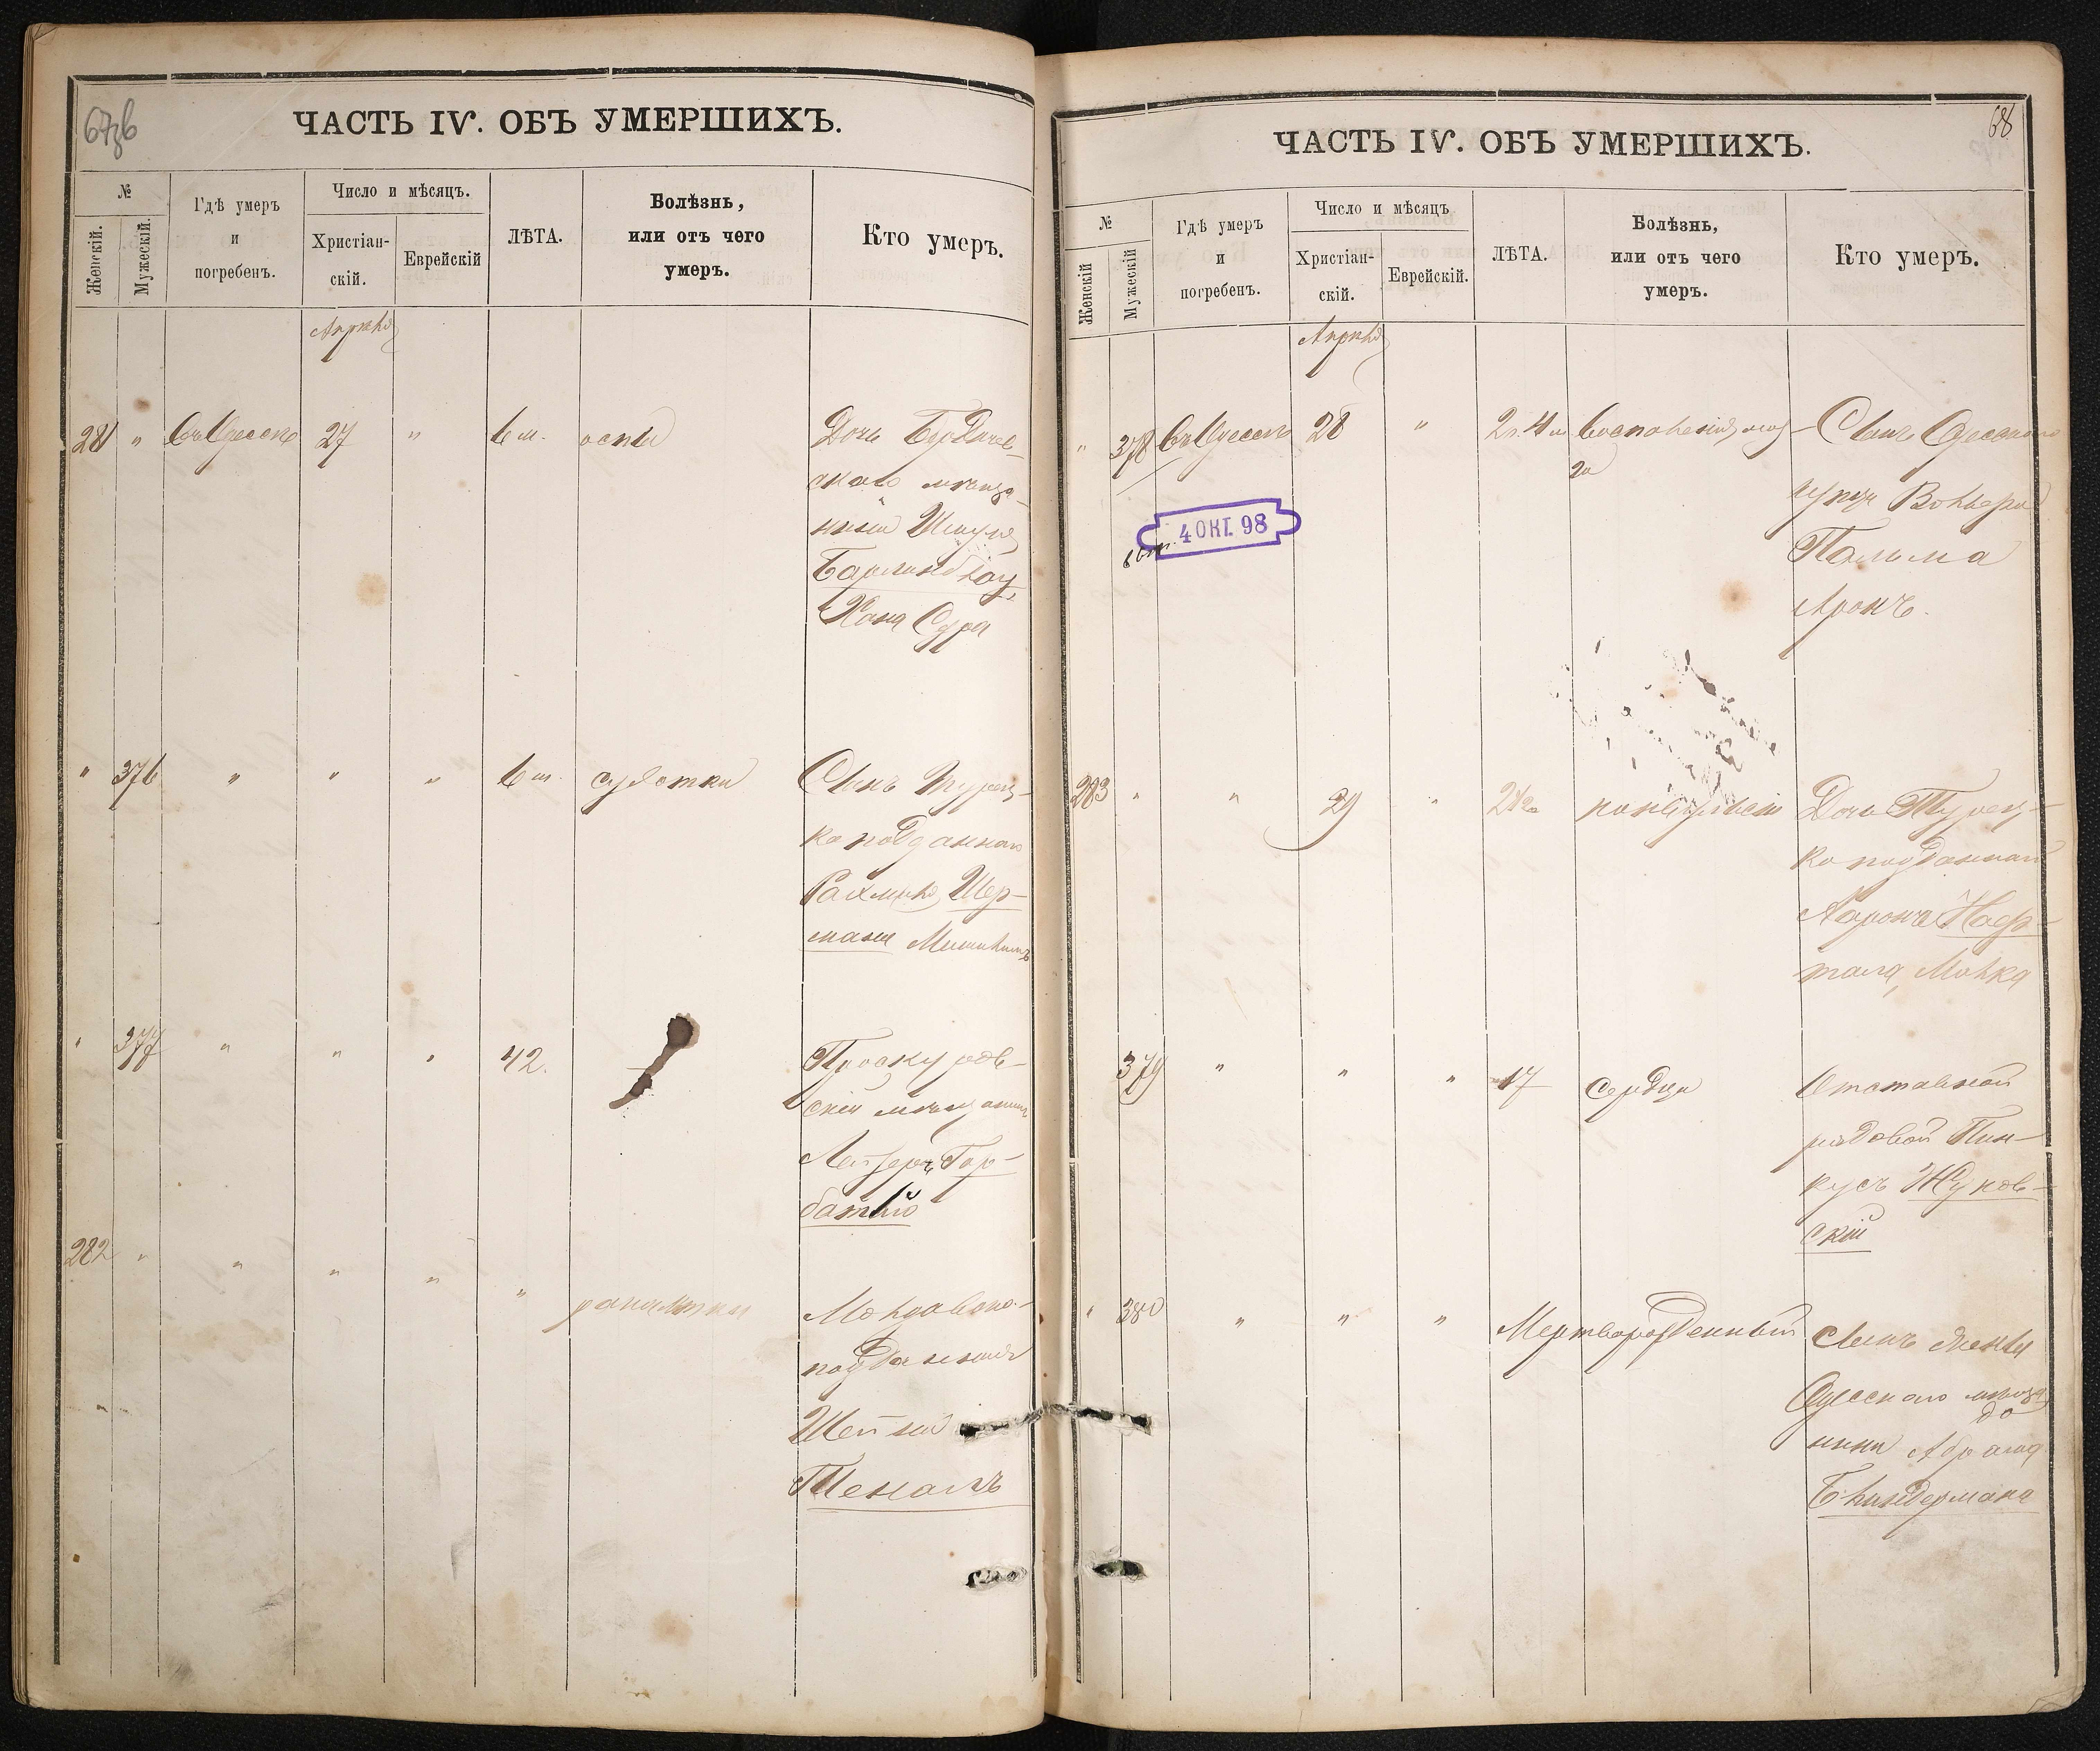 67зб
ЧАСТЬ IV. ОБЪ УМЕРШИХЪ.
№
Женскій.
Мужескій.
Гдѣ умеръ
и
погребенъ.
Число и мѣсяцъ.
Христіан-
скій.
Еврейскій
ЛѢТА.
Болѣзнь,
или отъ чего
умеръ.
Кто умеръ.
Апрѣля
281 " въ Одессѣ 27 " 6 м. оспы
Дочь Бердичев-
скаго мѣща-
нина
Хана Сура
" 376 " " " 6 м. сухотки
Сынъ Турец-
ко подданнаго
Рахмиля Шер-
мана
" 377 " " " 42.
Проскуров-
скій мѣщанинъ
Лейзеръ Гор-
батый
282 " " " " "
Молдавско-
подданная
68
ЧАСТЬ IV. ОБЪ УМЕРШИХЪ.
№
Женскій
Мужескій
Гдѣ умеръ
и
погребенъ.
Число и мѣсяцъ
Христіан-
скій.
Еврейскій.
ЛѢТА.
Болѣзнь,
или отъ чего
умеръ.
Кто умеръ.
Апрѣля
" 378 въ Одессѣ 28 " 2 г. 4 м. воспаленія моз-
га
Сынъ Одесскаго
купца Вольфа
Пальма
Аронъ.
4 ОКТ. 98
283 " " 29 "
Дочь Турец-
ко подданнаго
Аарона Наф-
тала, Малка
379 " " " 47 сердца
Отставной
рядовой Пин-
кусъ Жуков-
скій
" 380 " " " Мертворожденный
сынъ жены
Одесскаго мѣща-
нина Абрама
Блиндермана